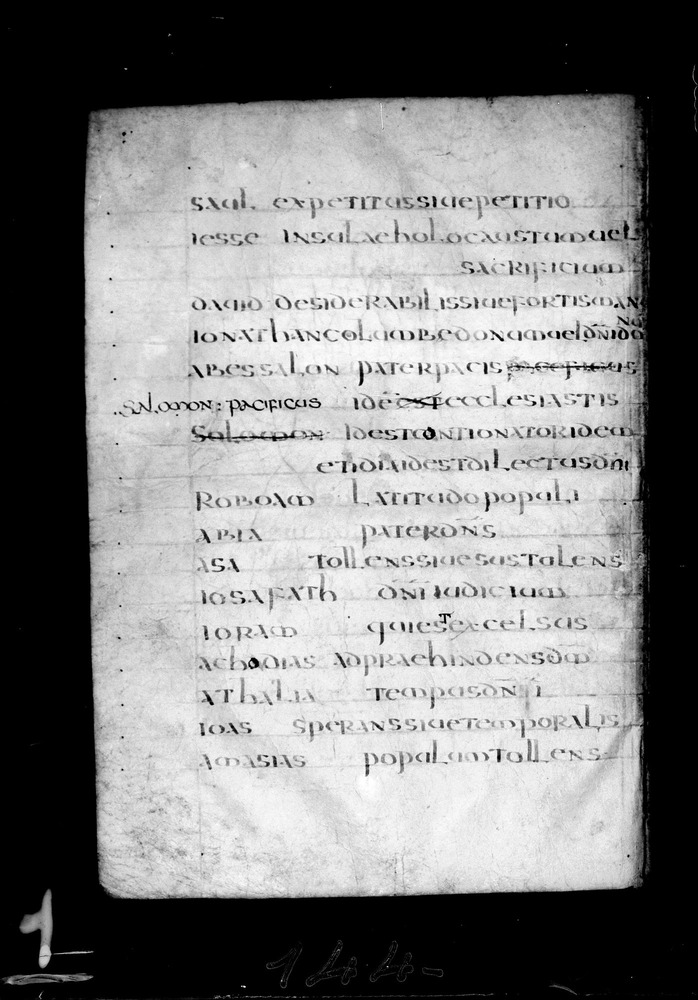 saul. expetitussiuepetitio
iesse insulaeholocaustumuel
sacrificium
dauid desiderabilissiuefortisman
nu
ionathancolumbedonumueldn̄ido
abessalon paterpacis pacificus
salomon: pacificus ideestecclesiastis
Salomon idestcontionatoridem
etidiaidestdilectusdn̄i
roboam latitudopopuli
abia paterdn̄s
asa tollenssiuesustolens
iosafath dn̄iiudicium
ioram quiestexcelsus
achodias adpraehindensdm̄
athalia tempusdn̄i
ioas speranssiuetemporalis
amasias populumtollens
1
144